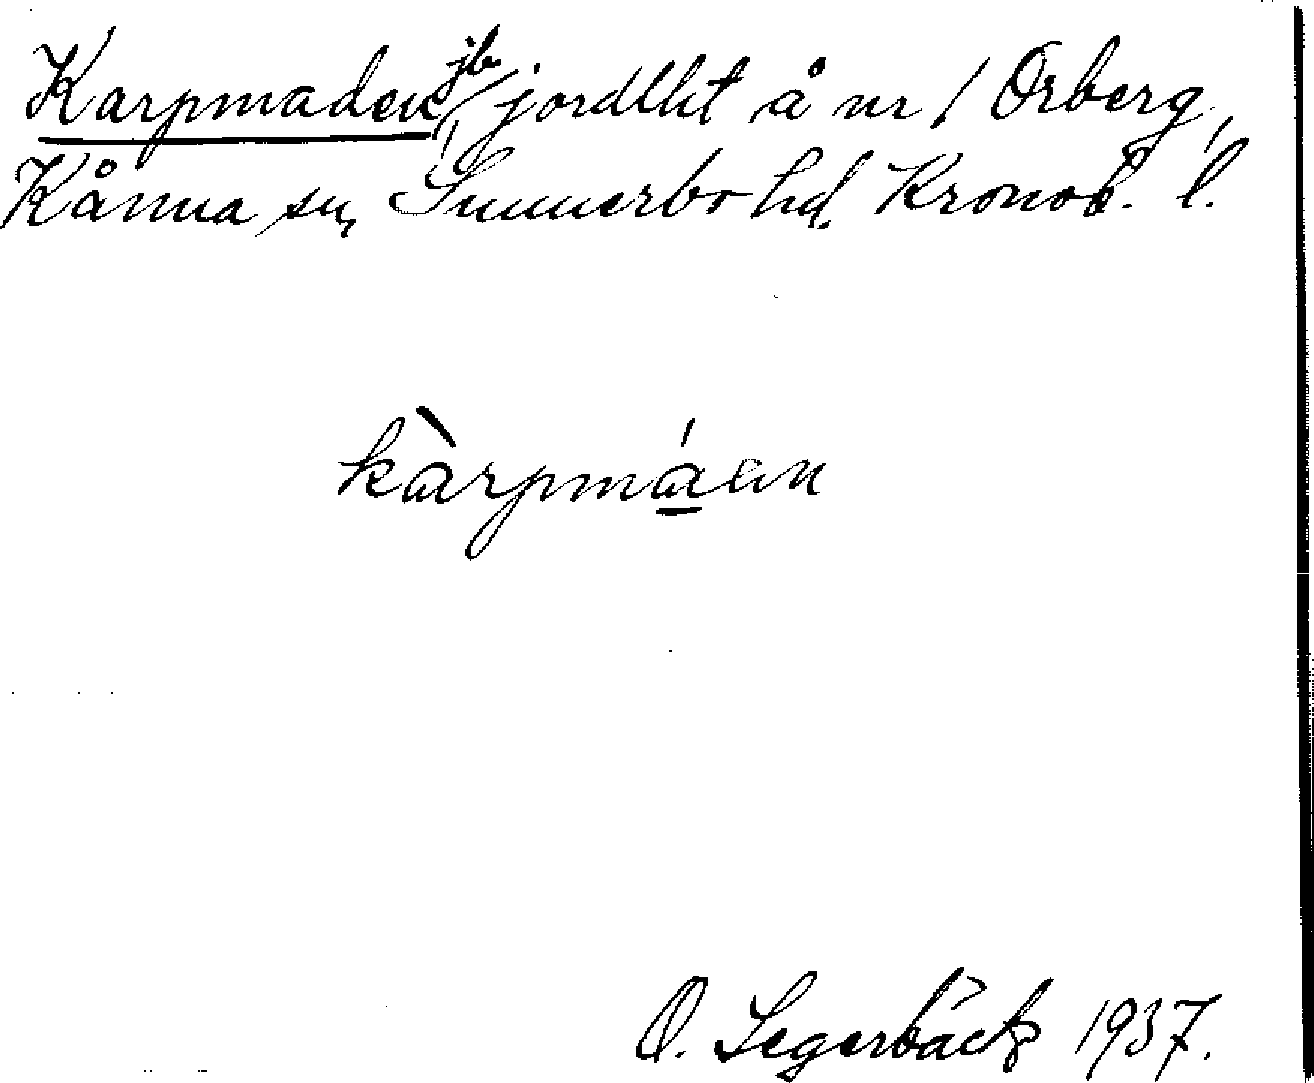 Karpmaden, jb. jordlht å nr 1 Örberg,
Kånna sn, Sunnerbo hd. Kronob. l.
kàrpmáen
O. Segerbäck 1937.